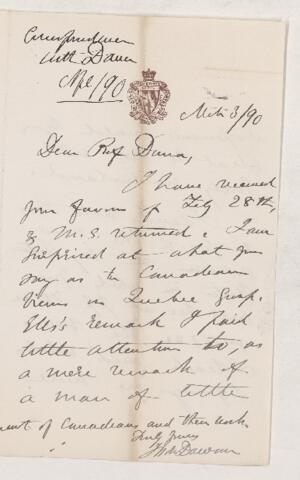 Correspondence
with Dana
Mch 3/90
Dear Prof Dana,
I have received
your favour of Feby 28th,
& M.S. returned. I am
surprised at what you
say as to Canadian
views on Quebec Group.
Ells's remark I paid
little attention to, as
a mere remark of
a man of little
of Canadians and their work
Truly yours
J W Dawson